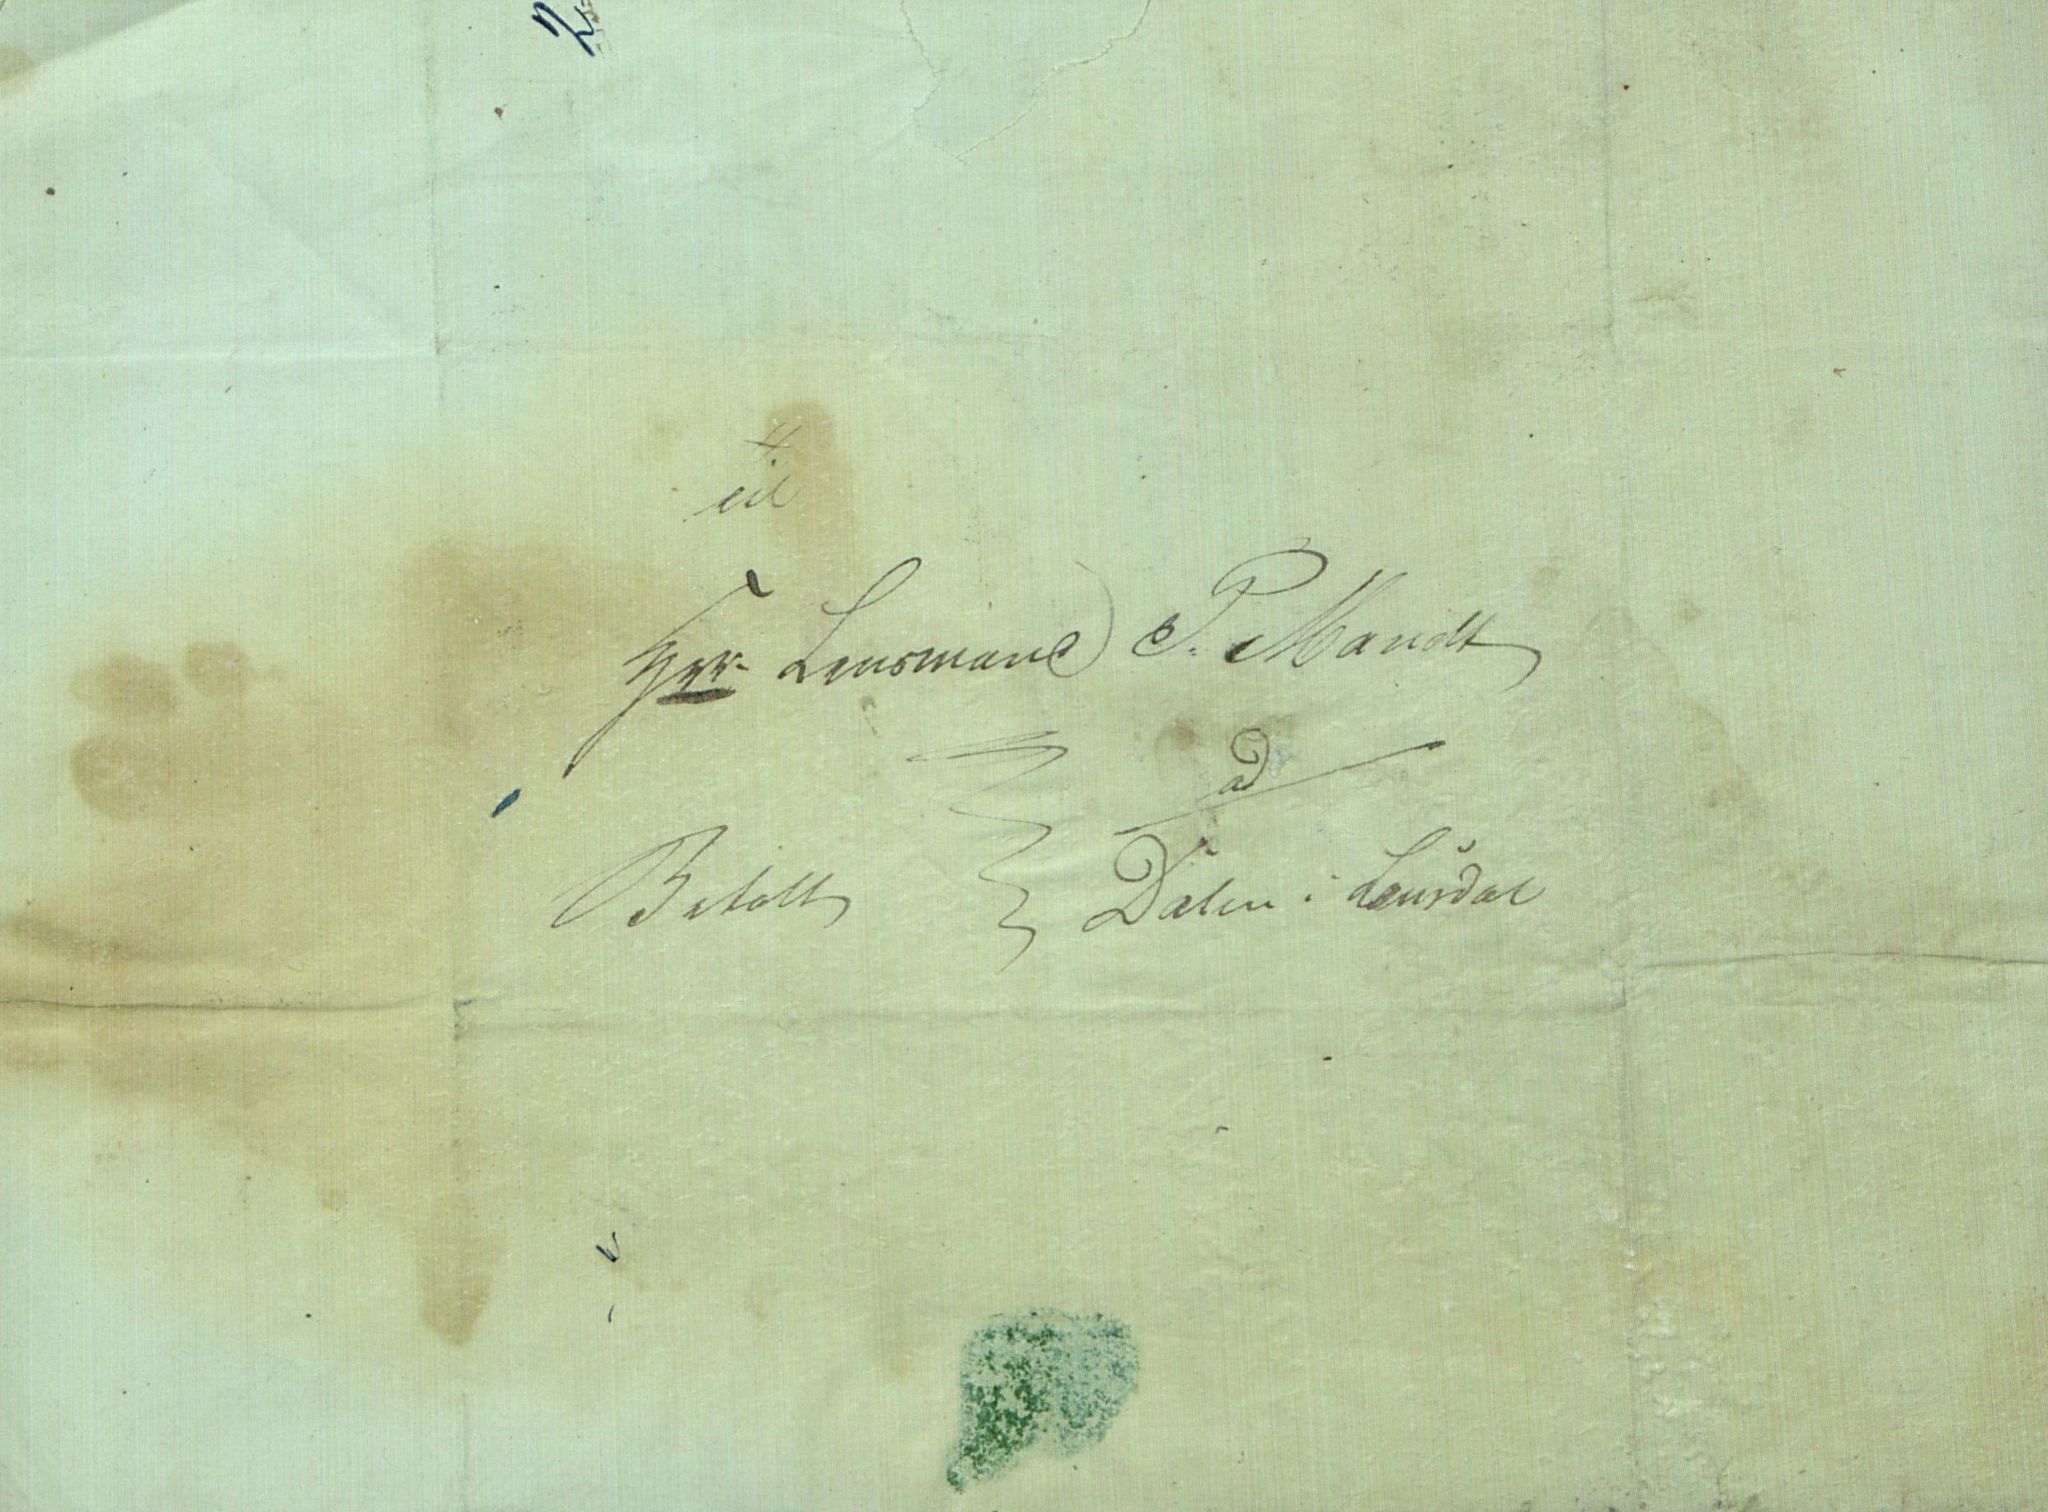 2
til
Hrr Lensmand P. Mandt
ad
Betalt Dalen i Laurdal